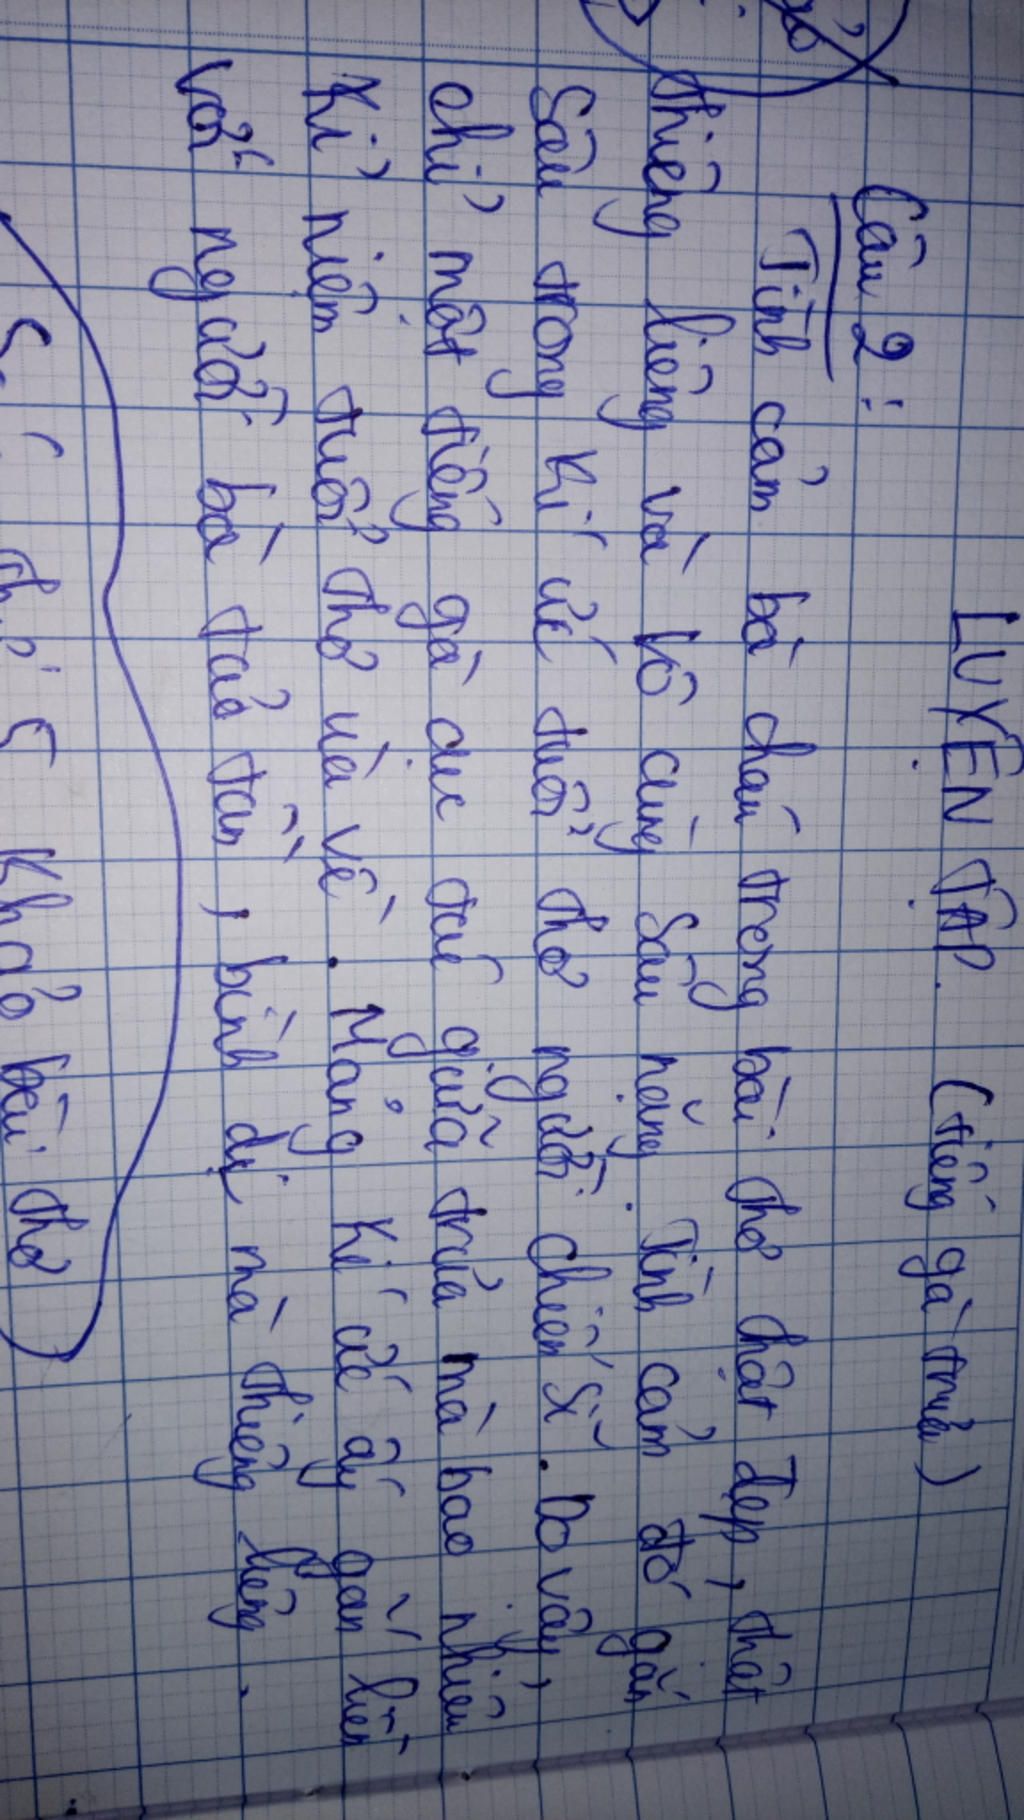 LUYỆN TẬP. (tiếng gà trưa)
Câu 2:
Tình cảm bà cháu trong bài thơ thật đẹp, thật
thiêng liêng và vô cùng sâu nặng. Tình cảm đó gắn
sâu trong kí ức tuổi thơ người chiến sĩ. Do vậy,
chỉ một tiếng gà cục tác giữa trưa mà bao nhiêu
kỉ niệm tuổi thơ ùa về. Mảng kí ức ấy gắn liền
với người bà tảo tần, bình dị mà thiêng liêng.
khảo bài thơ